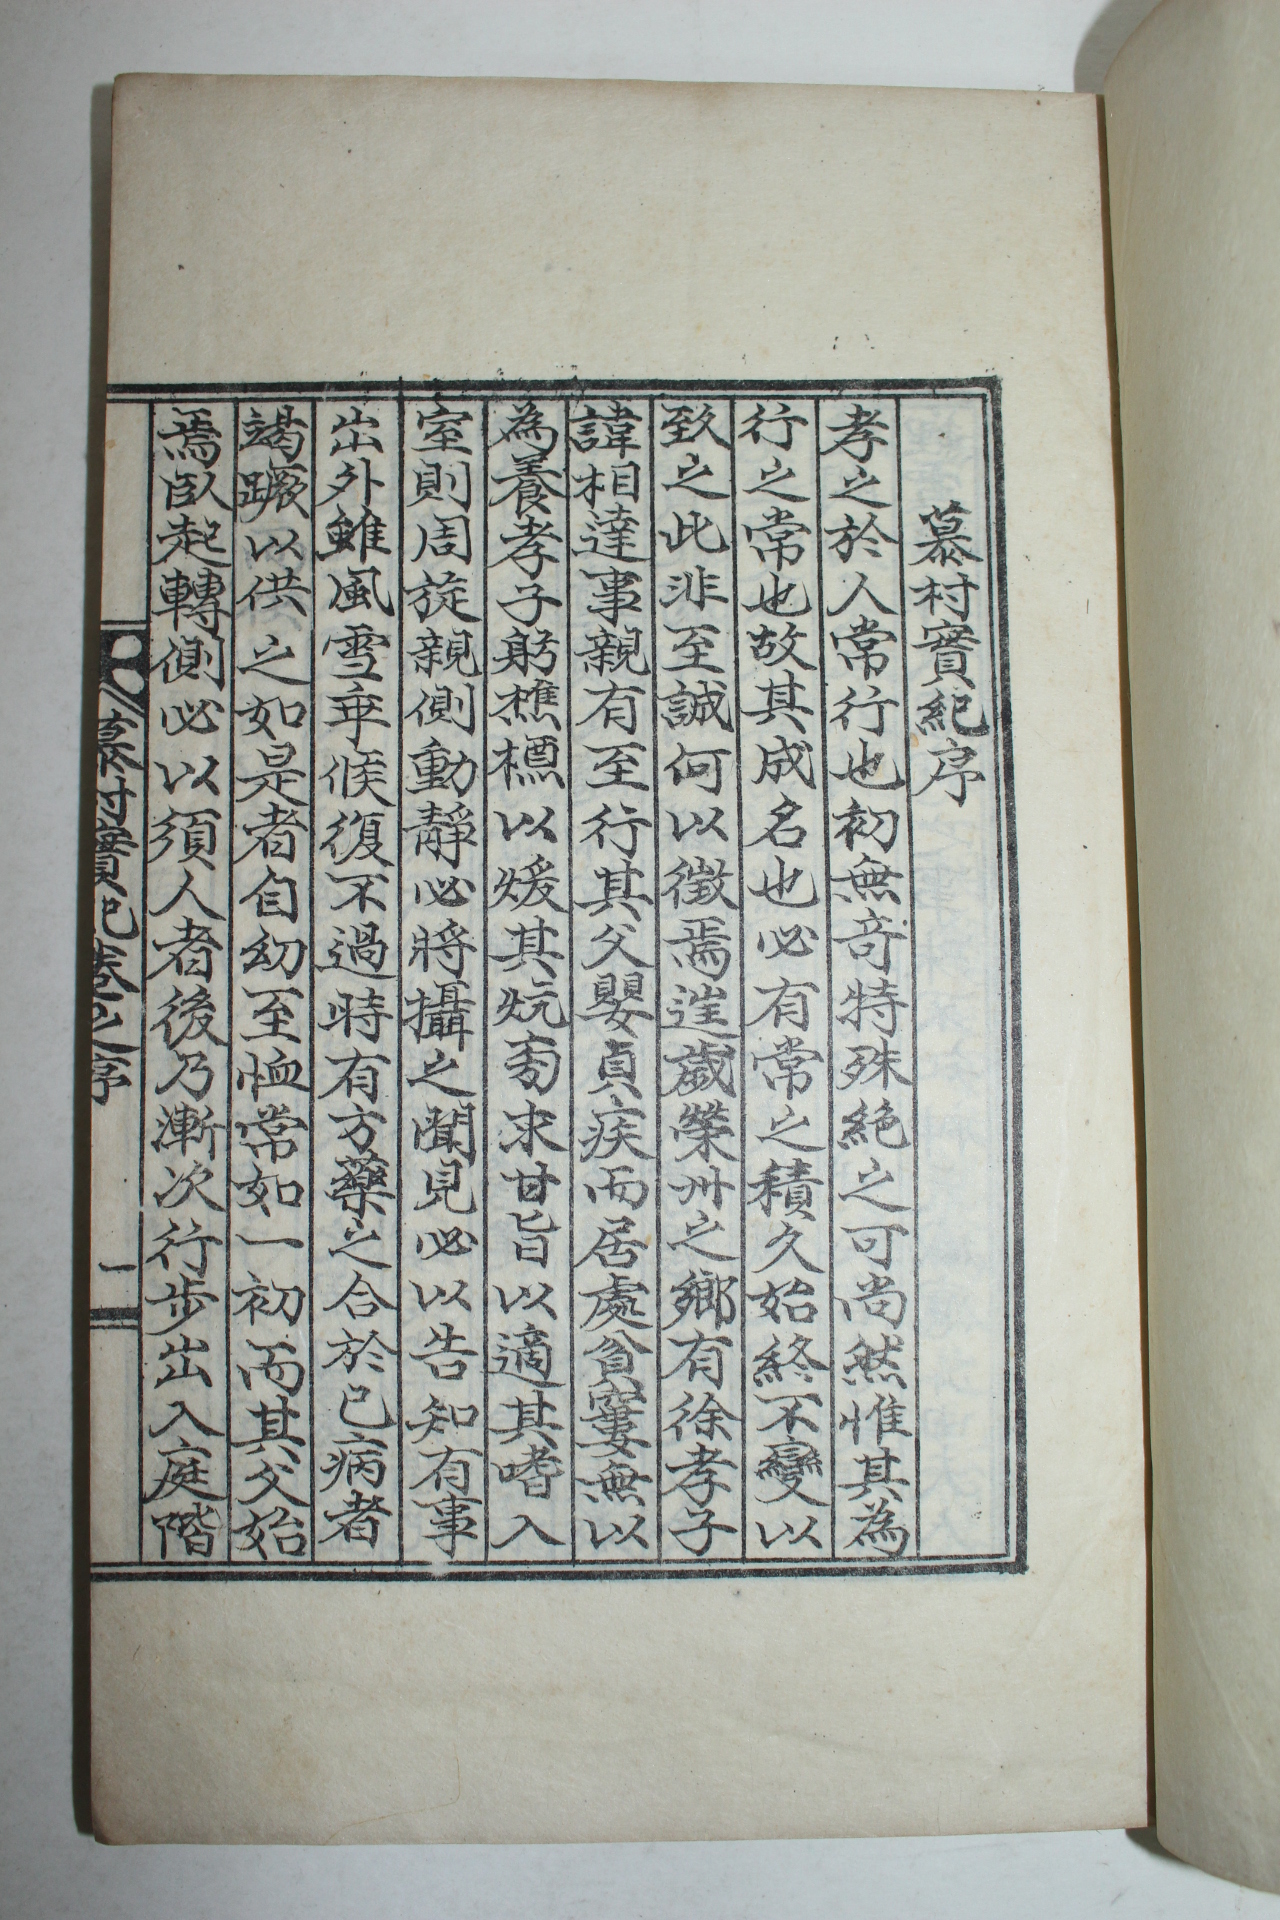 慕村實紀序
孝之於人常行也初無奇特殊絶之可尚然惟其為
行之常也故其成名也必有常之積久始終不變以
致之此非至誠何以徵焉迬歲榮州之鄉有徐孝子
諱相達事親有至行其父嬰貞疾而居處貧窶無以
為養孝子躬樵槱以煖其炕匋求甘旨以適其嗜入
室則周旋親側動靜必將攝之聞見必以告知有事
出外雖風雪乖候復不過時有方藥之合於已病者
竭蹶以供之如是者自幼至恤常如一初而其父始
焉臥起轉側必以須人者後乃漸次行步出入庭階
慕村實紀卷之序 一